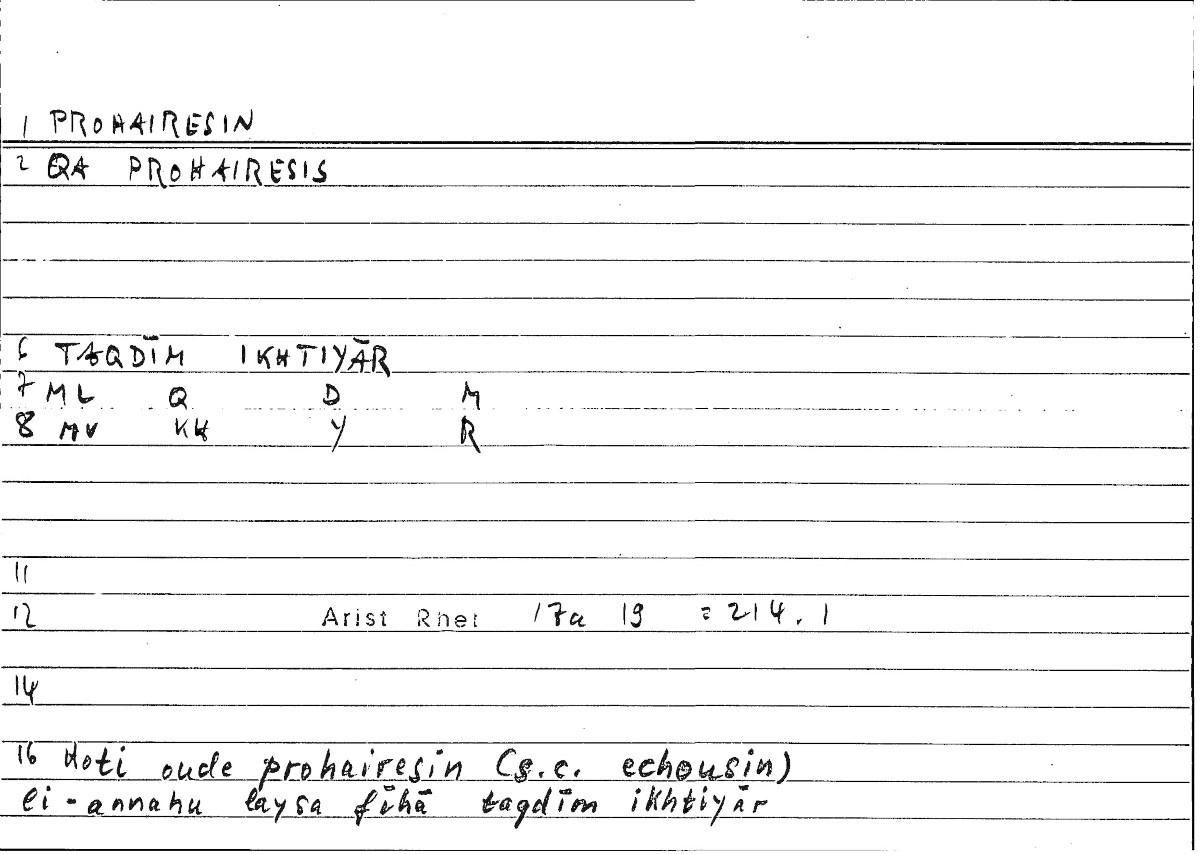 1 PROHAIRESIN
2 QA PROHAIRESIS
6 TAQDĪM IKHTIYĀR
7 ML Q D M
8 MV KH Y R
11
12 Arist Rhet 17a 19 = 214.1
14
16 Hoti oude prohairesin (s.c. echousin)
li-annahu laysa fīhā taqdīm ikhtiyār